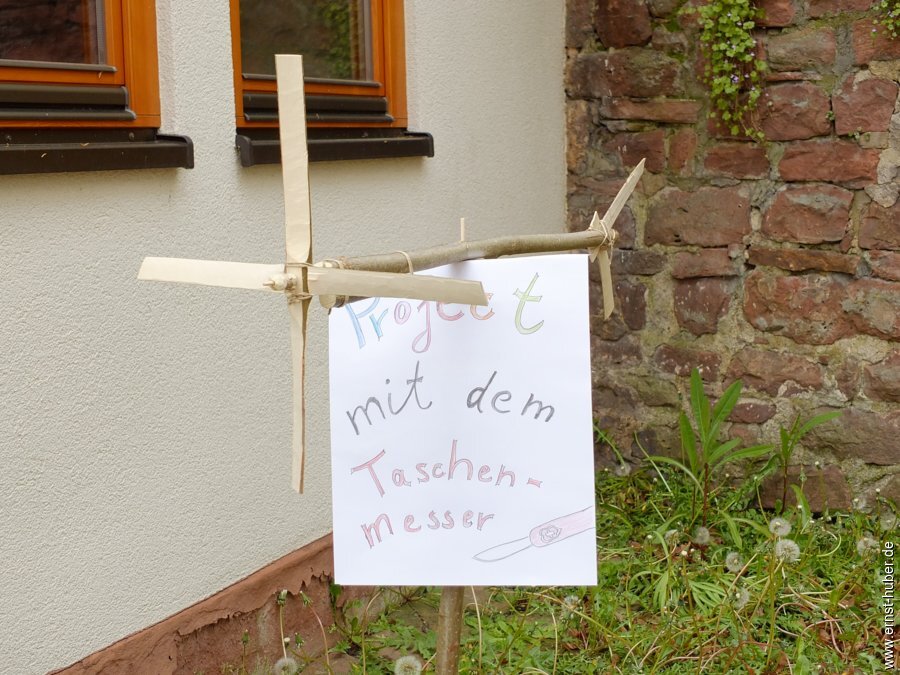 Project
mit dem
Taschen-
messer
www.ernst-huber.de